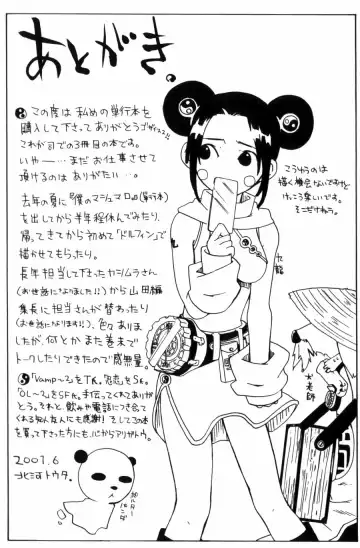 あとがき。
この度は私めの単行本を
購入して下さってありがとうゴザイマス!!
これが司での3冊目の本です。
いやー…まだお仕事させて
頂けるのはありがたい…。
去年の夏に『僕のマシュマロ』(単行本)
を出してから半年程休んでみたり、
帰ってきてから初めて「ドルフィン」で
描かせてもらったり。
長年担当して下さったカシムラさん
(お世話になりました!!)から山田編
集長に担当さんが替わったり
(お世話になります!!)、色々ありま
したが、何とかまた巻末で
トークしたりできたので感無量。
「Vamp〜」をTK。
「OL〜」をSFK。手伝ってくれてありが
とう。それと、飲みや電話につき合て
くれる知人なんにも感謝!そしてこの本
を買って下さった方にも、心からアリガトウ。
2001.6
北河トウタ。
こういうのは
描く機会ないですけど
けっこう楽しいです。
そこだけねらう。
九龍
犬老師
ポルター
パンダ